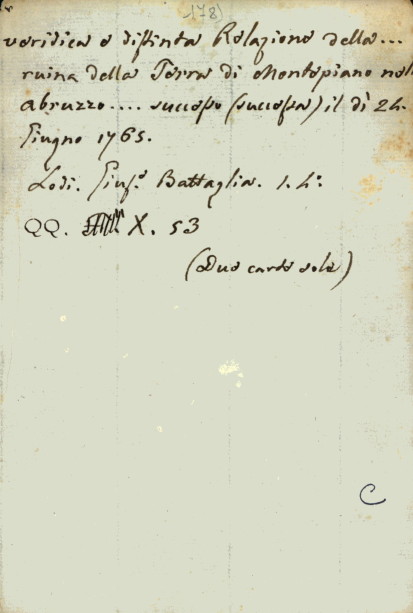 178)
veridica e distinta Relazione della...
ruina della Terra di Montepiano nell
abruzzo.... successo (successa) il dì 24.
Giugno 1765.
Lodi. Gius.e Battaglia. 1. 4°.
QQ. X. 53
(Due carte sole)
C